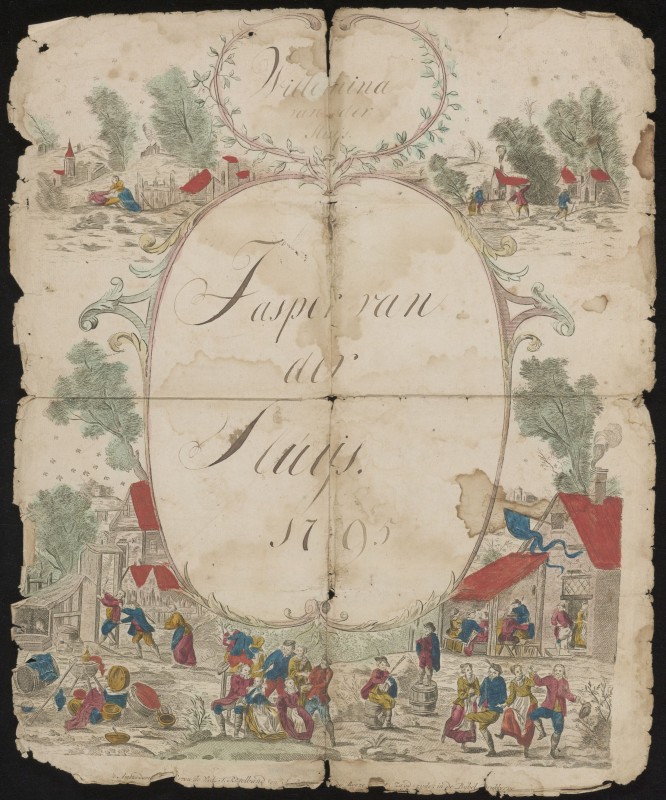 Willemina
van der
Sluis
Jasper van
der
Sluijs.
1795